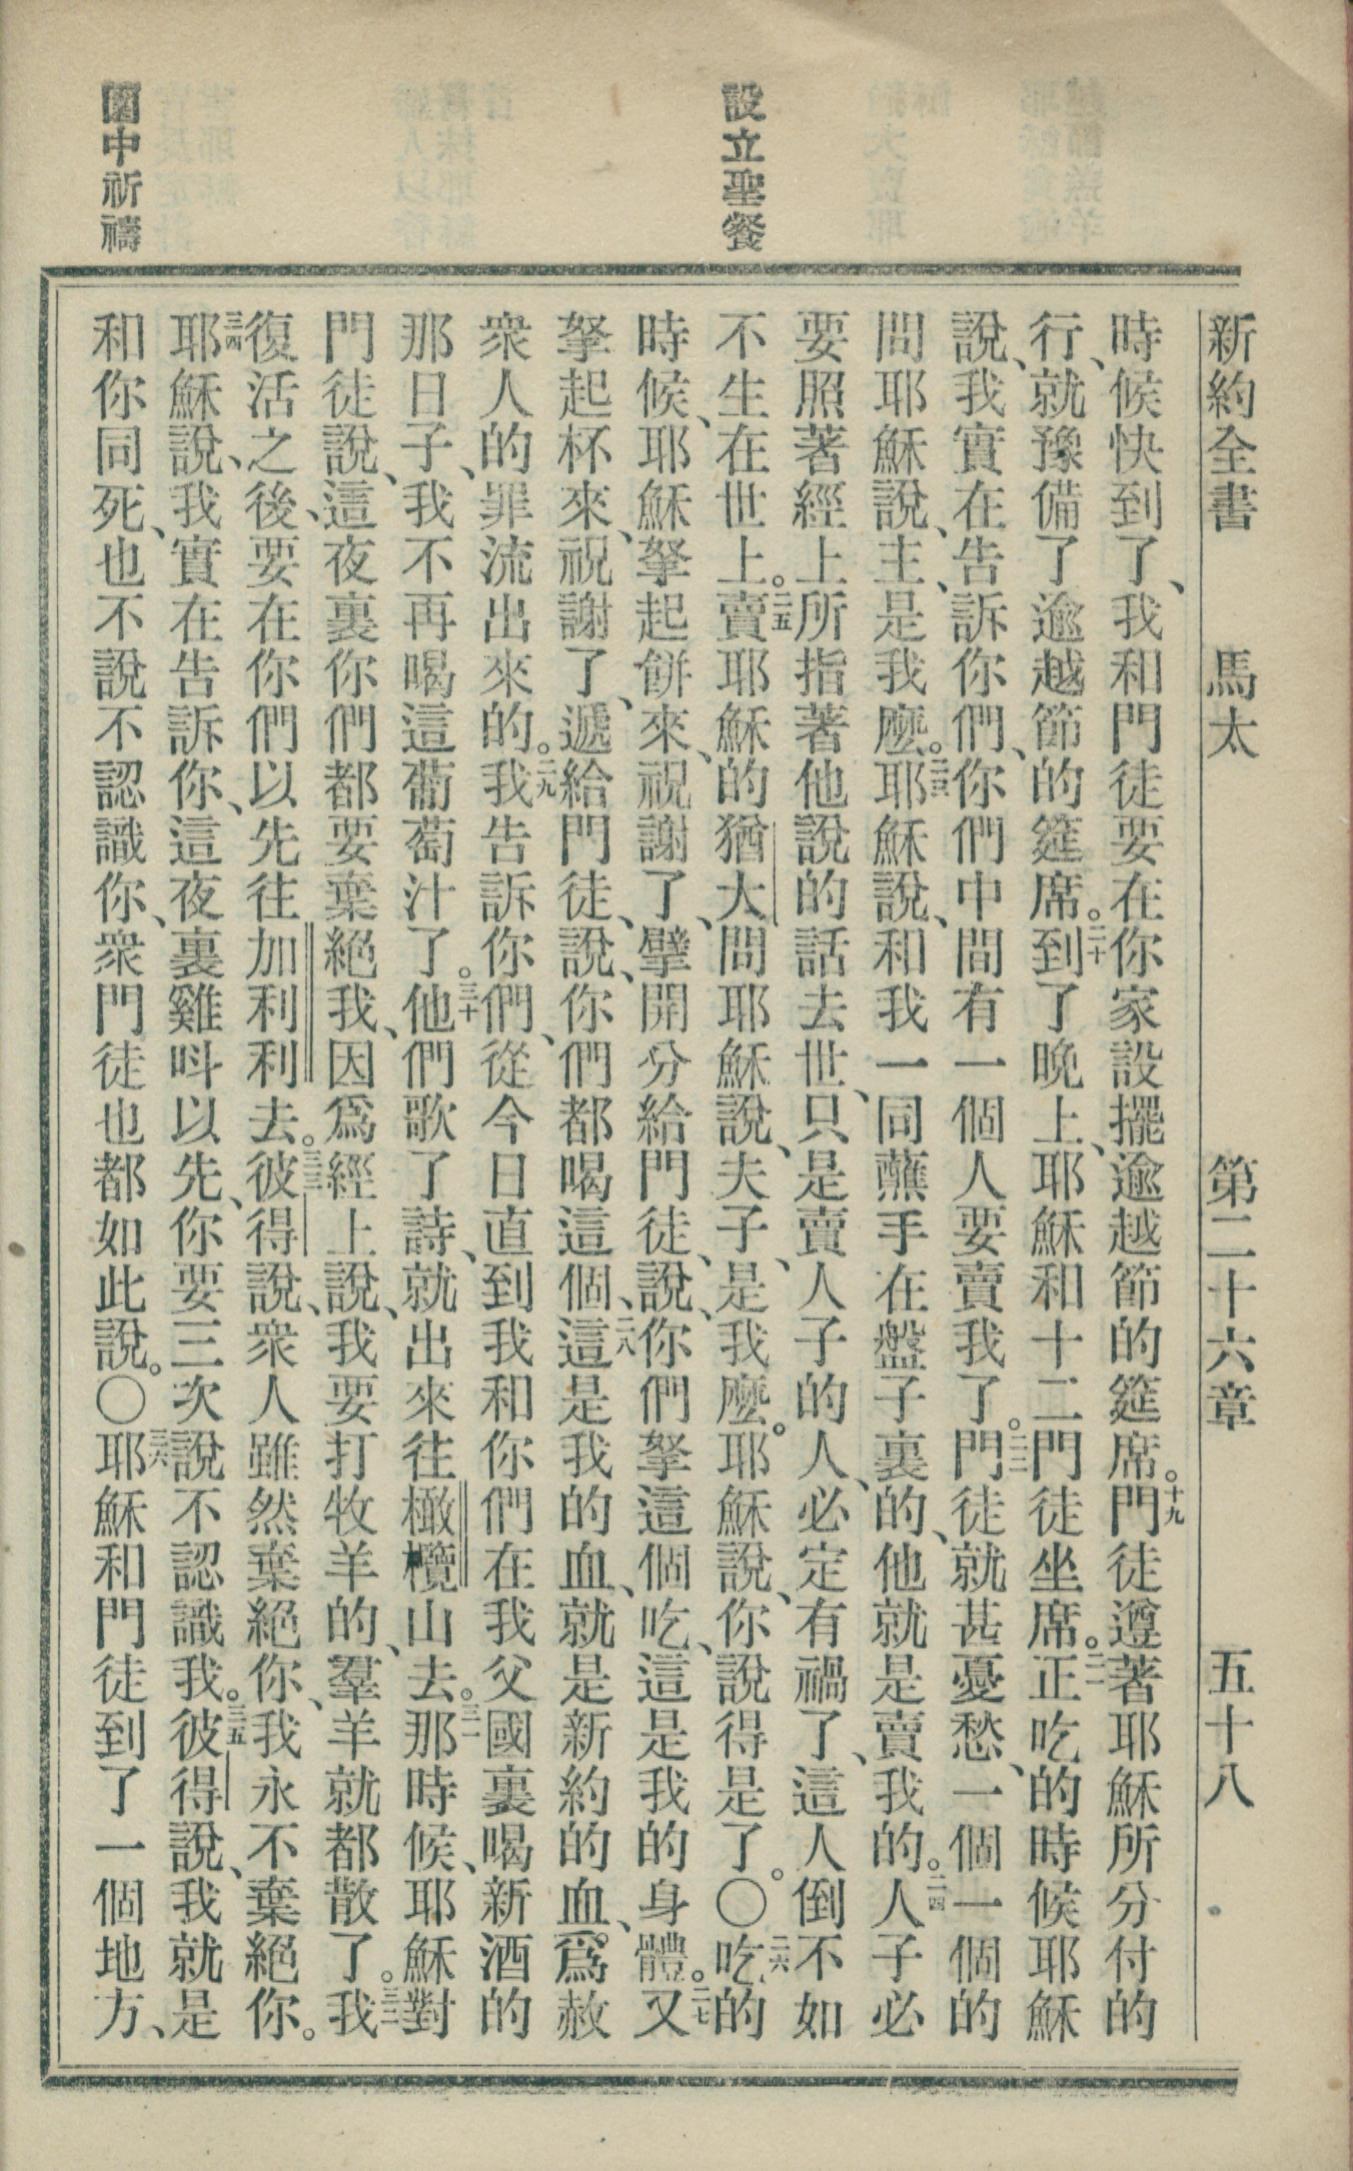 新約全書　馬太　第二十六章　五十八
設立聖餐
園中祈禱
時候快到了、我和門徒要在你家設擺逾越節的筵席。十九門徒遵著耶穌所分付的
行、就豫備了逾越節的筵席。二十到了晚上、耶穌和十二門徒坐席。二一正吃的時候耶穌
說、我實在告訴你們、你們中間有一個人要賣我了。二二門徒就甚憂愁、一個一個的
問耶穌說、主、是我麼。二三耶穌說、和我一同蘸手在盤子裏的、他就是賣我的。二四人子必
要照著經上所指著他說的話去世、只是賣人子的人、必定有禍了、這人倒不如
不生在世上。二五賣耶穌的猶大問耶穌說、夫子、是我麼。耶穌說、你說得是了。〇二六吃的
時候、耶穌拏起餅來、祝謝了、擘開分給門徒、說、你們拏這個吃、這是我的身體。二七又
拏起杯來、祝謝了、遞給門徒、說、你們都喝這個、二八這是我的血、就是新約的血、爲赦
衆人的罪流出來的。二九我告訴你們、從今日直到我和你們在我父國裏喝新酒的
那日子、我不再喝這葡萄汁了。三十他們歌了詩、就出來往橄欖山去。三一那時候、耶穌對
門徒說、這夜裏你們都要棄絕我、因爲經上說、我要打牧羊的、羣羊就都散了。三二我
復活之後、要在你們以先往加利利去。三三彼得說、衆人雖然棄絕你、我永不棄絕你。
三四耶穌說、我實在告訴你、這夜裏雞呌以先、你要三次說不認識我。三五彼得說、我就是
和你同死、也不說不認識你、衆門徒也都如此說。〇三六耶穌和門徒到了一個地方、